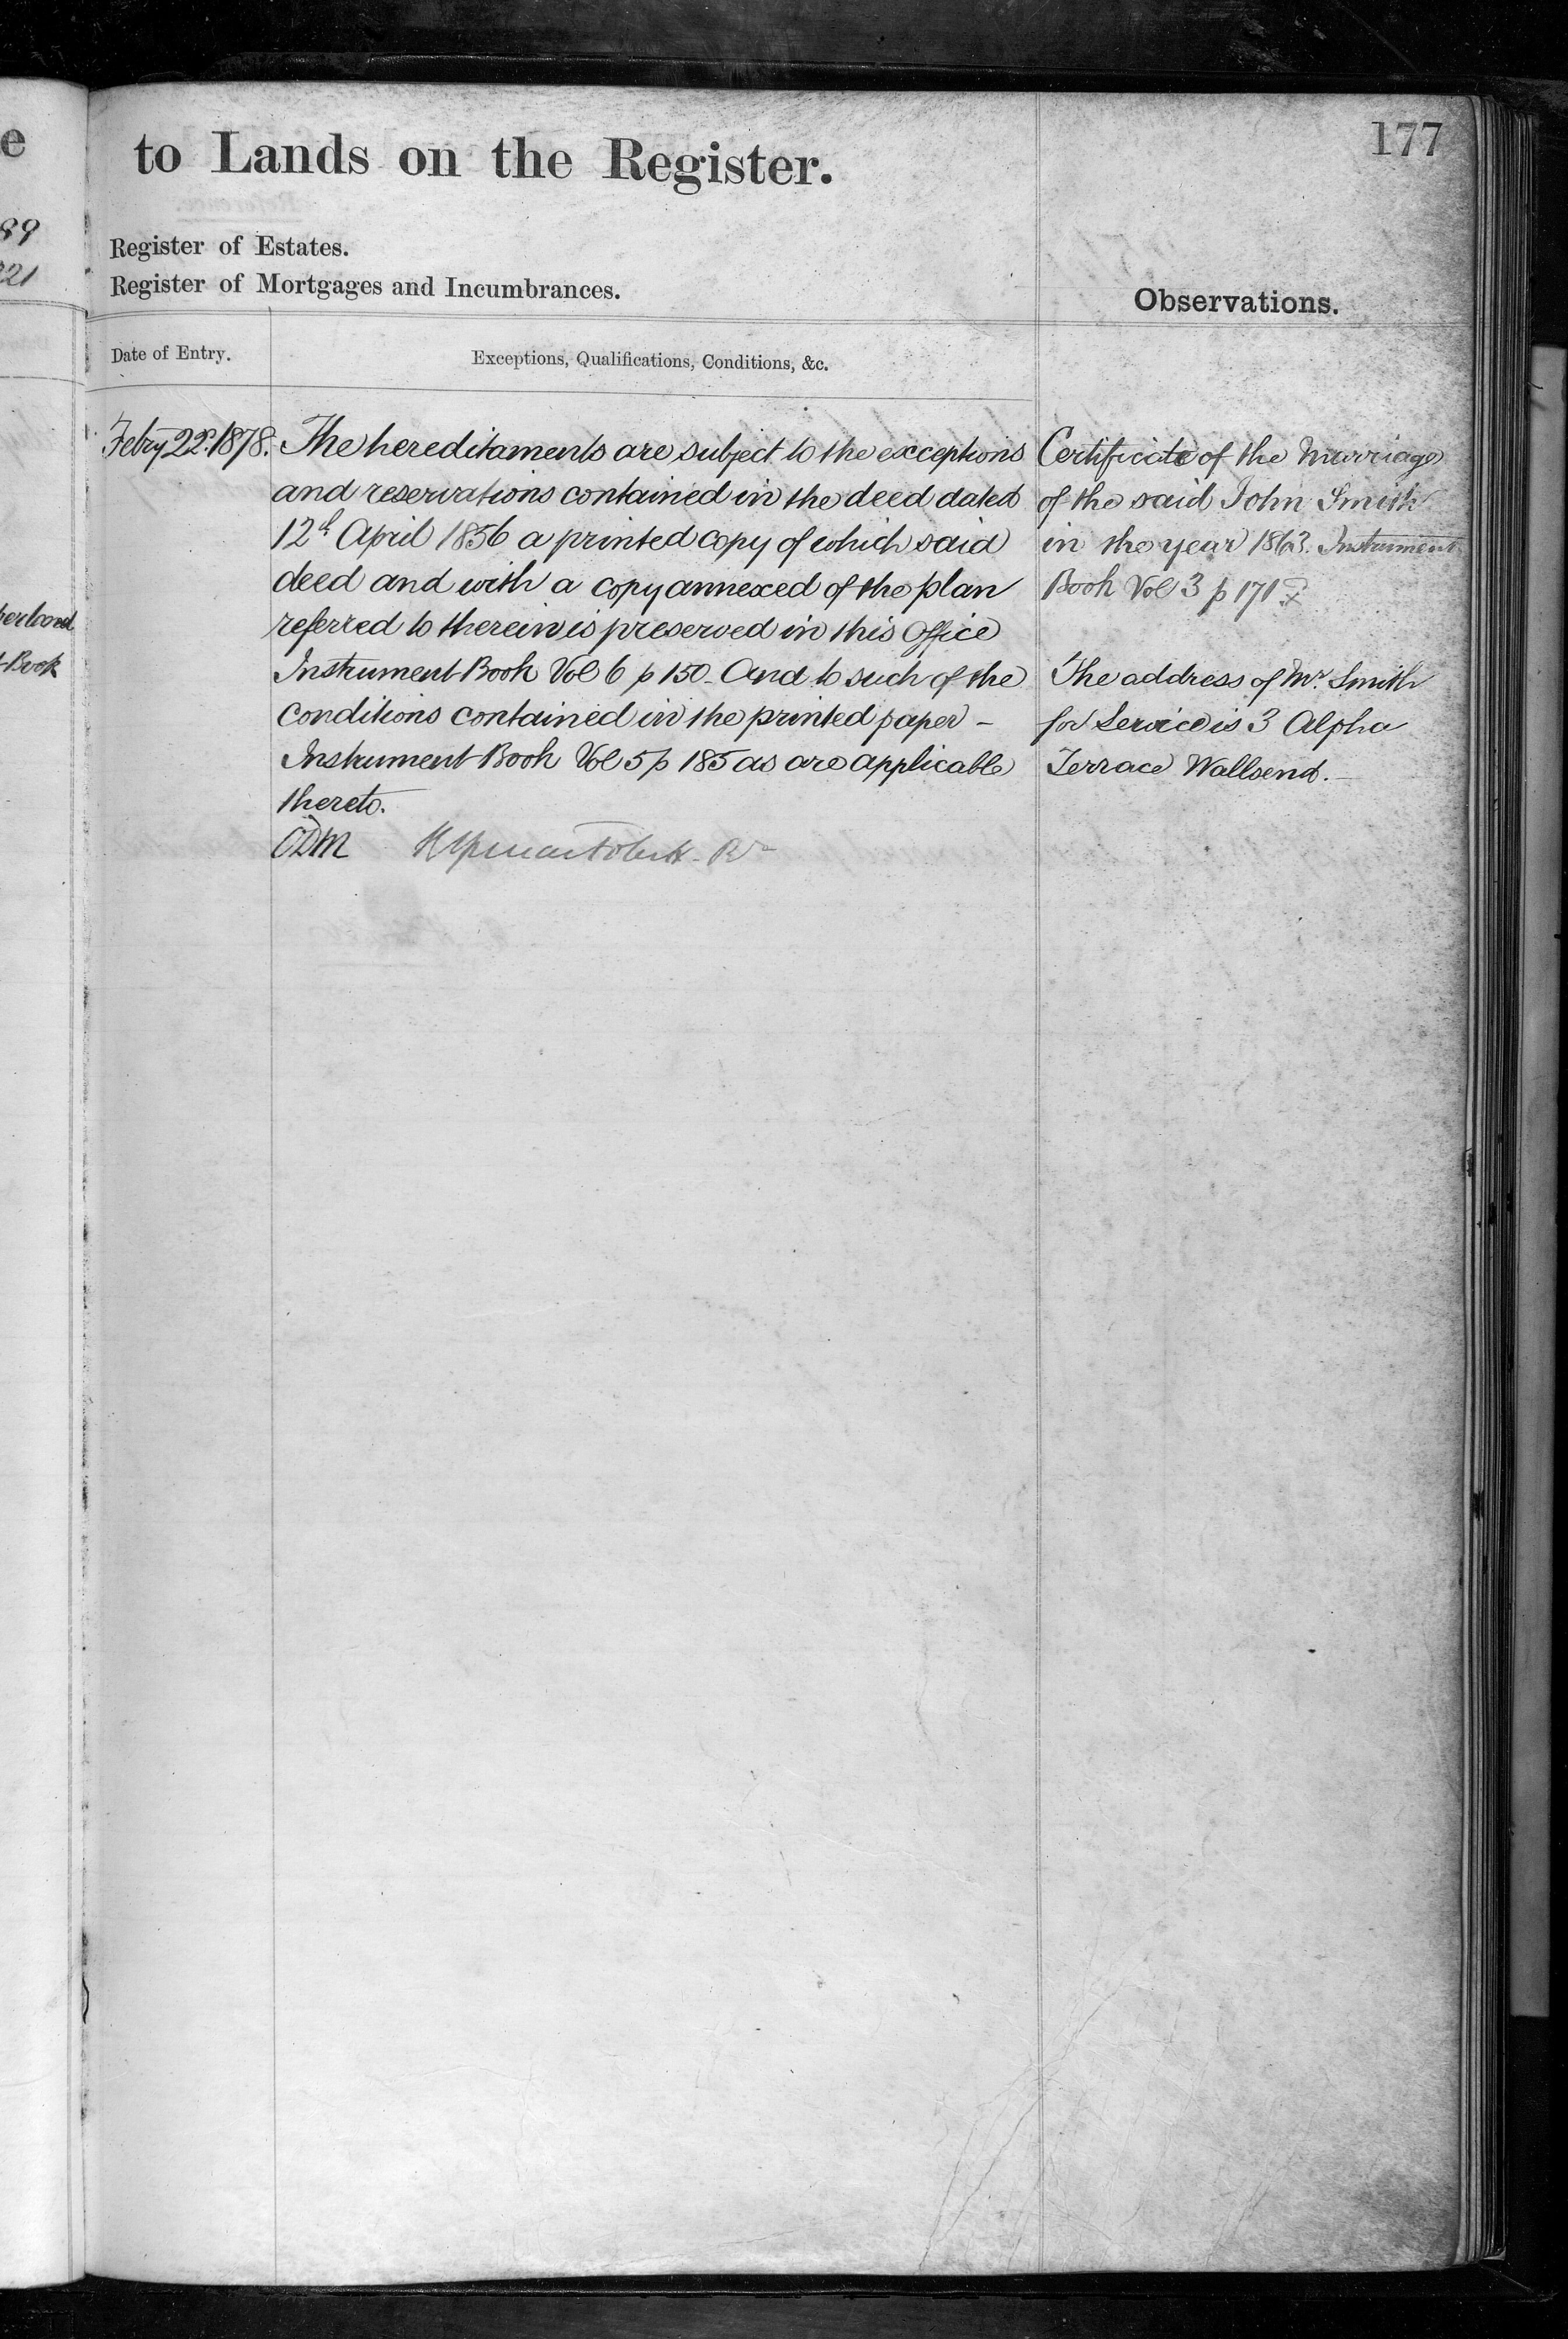 e
89
221
erland
Book
177
to Lands on the Register.
Register of Estates.
Register of Mortgages and Incumbrances.
Observations.
Date of Entry.
Exceptions, Qualifications, Conditions, &c.
Febry 22d. 1878.
The hereditaments are subject to the exceptions
and reservations contained in the deed dated
12th April 1856 a printed copy of which said
deed and with a copy annexed of the plan
referred to therein is preserved in this Office
Instrument Book Vol 6 p 150 - And to such of the
conditions contained in the printed paper -
Instrument Book Vol 5 p 185 as are applicable
thereto.
CDM
Certificate of the Marriage
of the said John Smith
in the year 1863. Instrument
Book Vol 3 p 171
The address of Mr. Smith
for Service is 3 Alpha
Terrace Wallsend. -